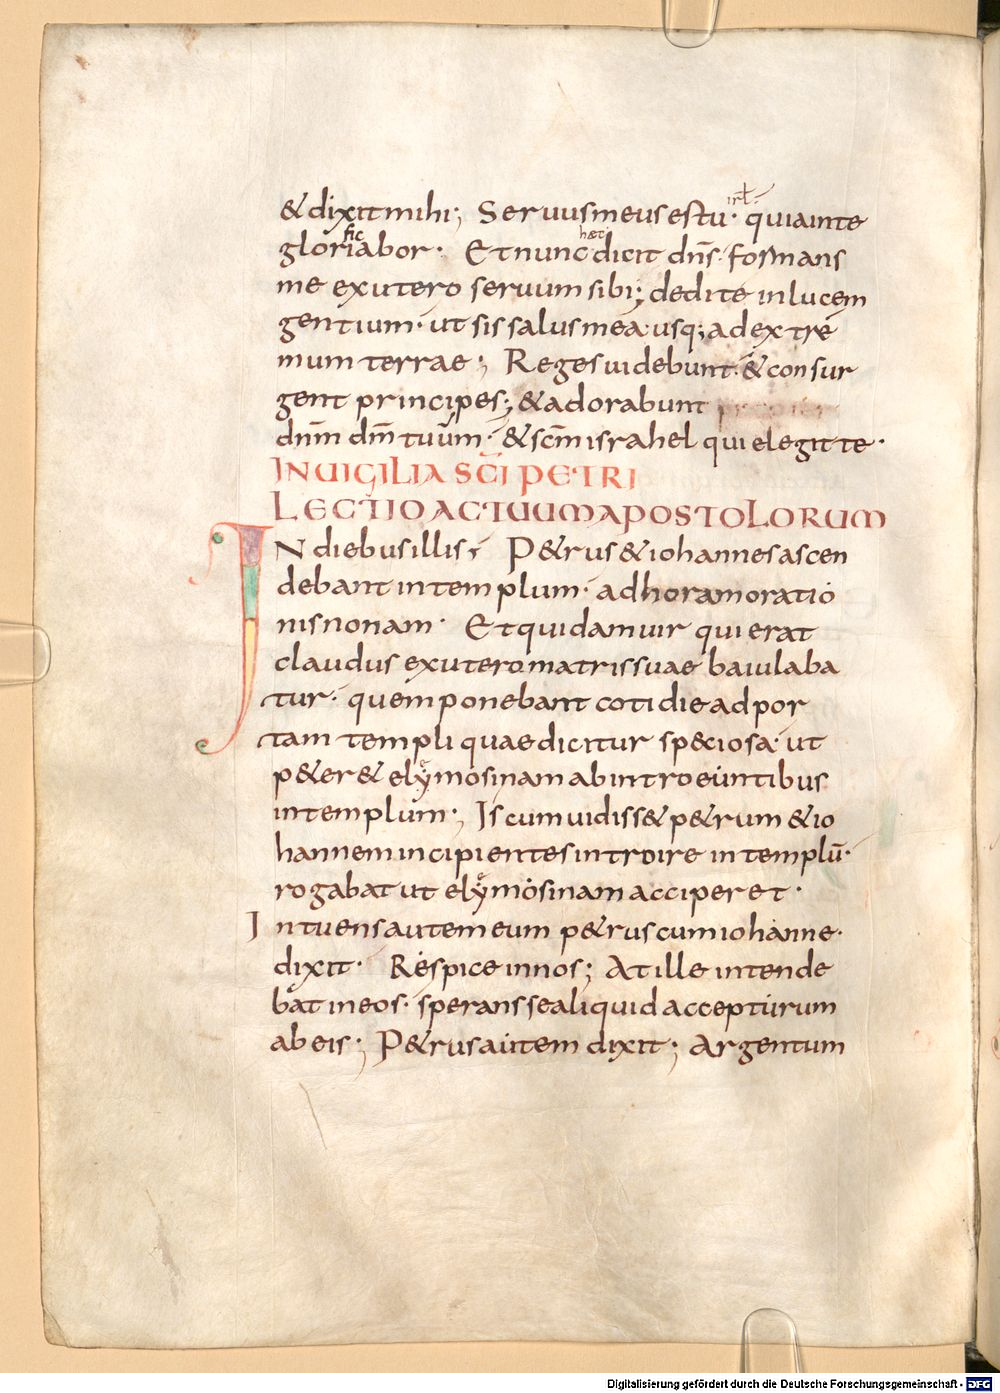 & dixit mihi; Seruus meus es tu· irl̄ quia in te
glorificabor· Et nunc haec dicit dn̄s· formans
me ex utero seruum sibi; dedi te in lucem
gentium· ut sis salus mea usq; ad extre
mum terrae; Reges uidebunt· & consur
gent principes; & adorabunt
dnm̄ dm̄ tuūm· & scm̄ israhel qui elegit te·
IN UIGILIA SCI PETRI
LECTIO ACTUUM APOSTOLORUM
IN diebus illis; P&rus & iohannes ascen
debant in templum· ad horam oratio
nis nonam· Et quidam uir qui erat
claudus ex utero matris suae baiulaba
tur· quem ponebant cotidie ad por
tam templi quae dicitur speciosa· ut
p&er& elymosinam ab introeuntibus
in templum·; Is cum uidiss& p&rum & io
hannem incipientes introire in templū·
rogabat ut elymosinam acciperet·
Intuens autem eum p&rus cum iohanne·
dixit· Respice in nos; At ille intende
bat in eos· sperans se aliquid accepturum
ab eis·; P&rus autem dixit; Argentum
Digitalisierung gefördert durch die Deutsche Forschungsgemeinschaft - DFG